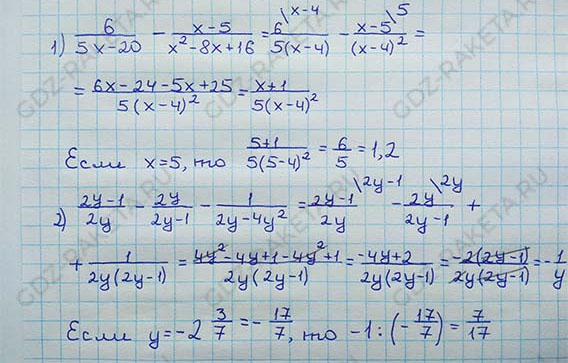 1) 6/(5x-20) - (x-5)/(x²-8x+16) = 6\x-4/(5(x-4)) - (x-5)\5/((x-4)²) =
= (6x-24-5x+25)/(5(x-4)²) = (x+1)/(5(x-4)²)
Если x=5, то (5+1)/(5(5-4)²) = 6/5 = 1,2
2) (2y-1)/(2y) - (2y)/(2y-1) - 1/(2y-4y²) = (2y-1)\2y-1/(2y) - (2y)\2y/(2y-1) +
+ 1/(2y(2y-1)) = (4y²-4y+1-4y²+1)/(2y(2y-1)) = (-4y+2)/(2y(2y-1)) = (-2(2y-1))/(2y(2y-1)) = -1/y
Если y=-2 3/7 = -17/7, то -1:(-17/7) = 7/17
GDZ-RAKETA.RU